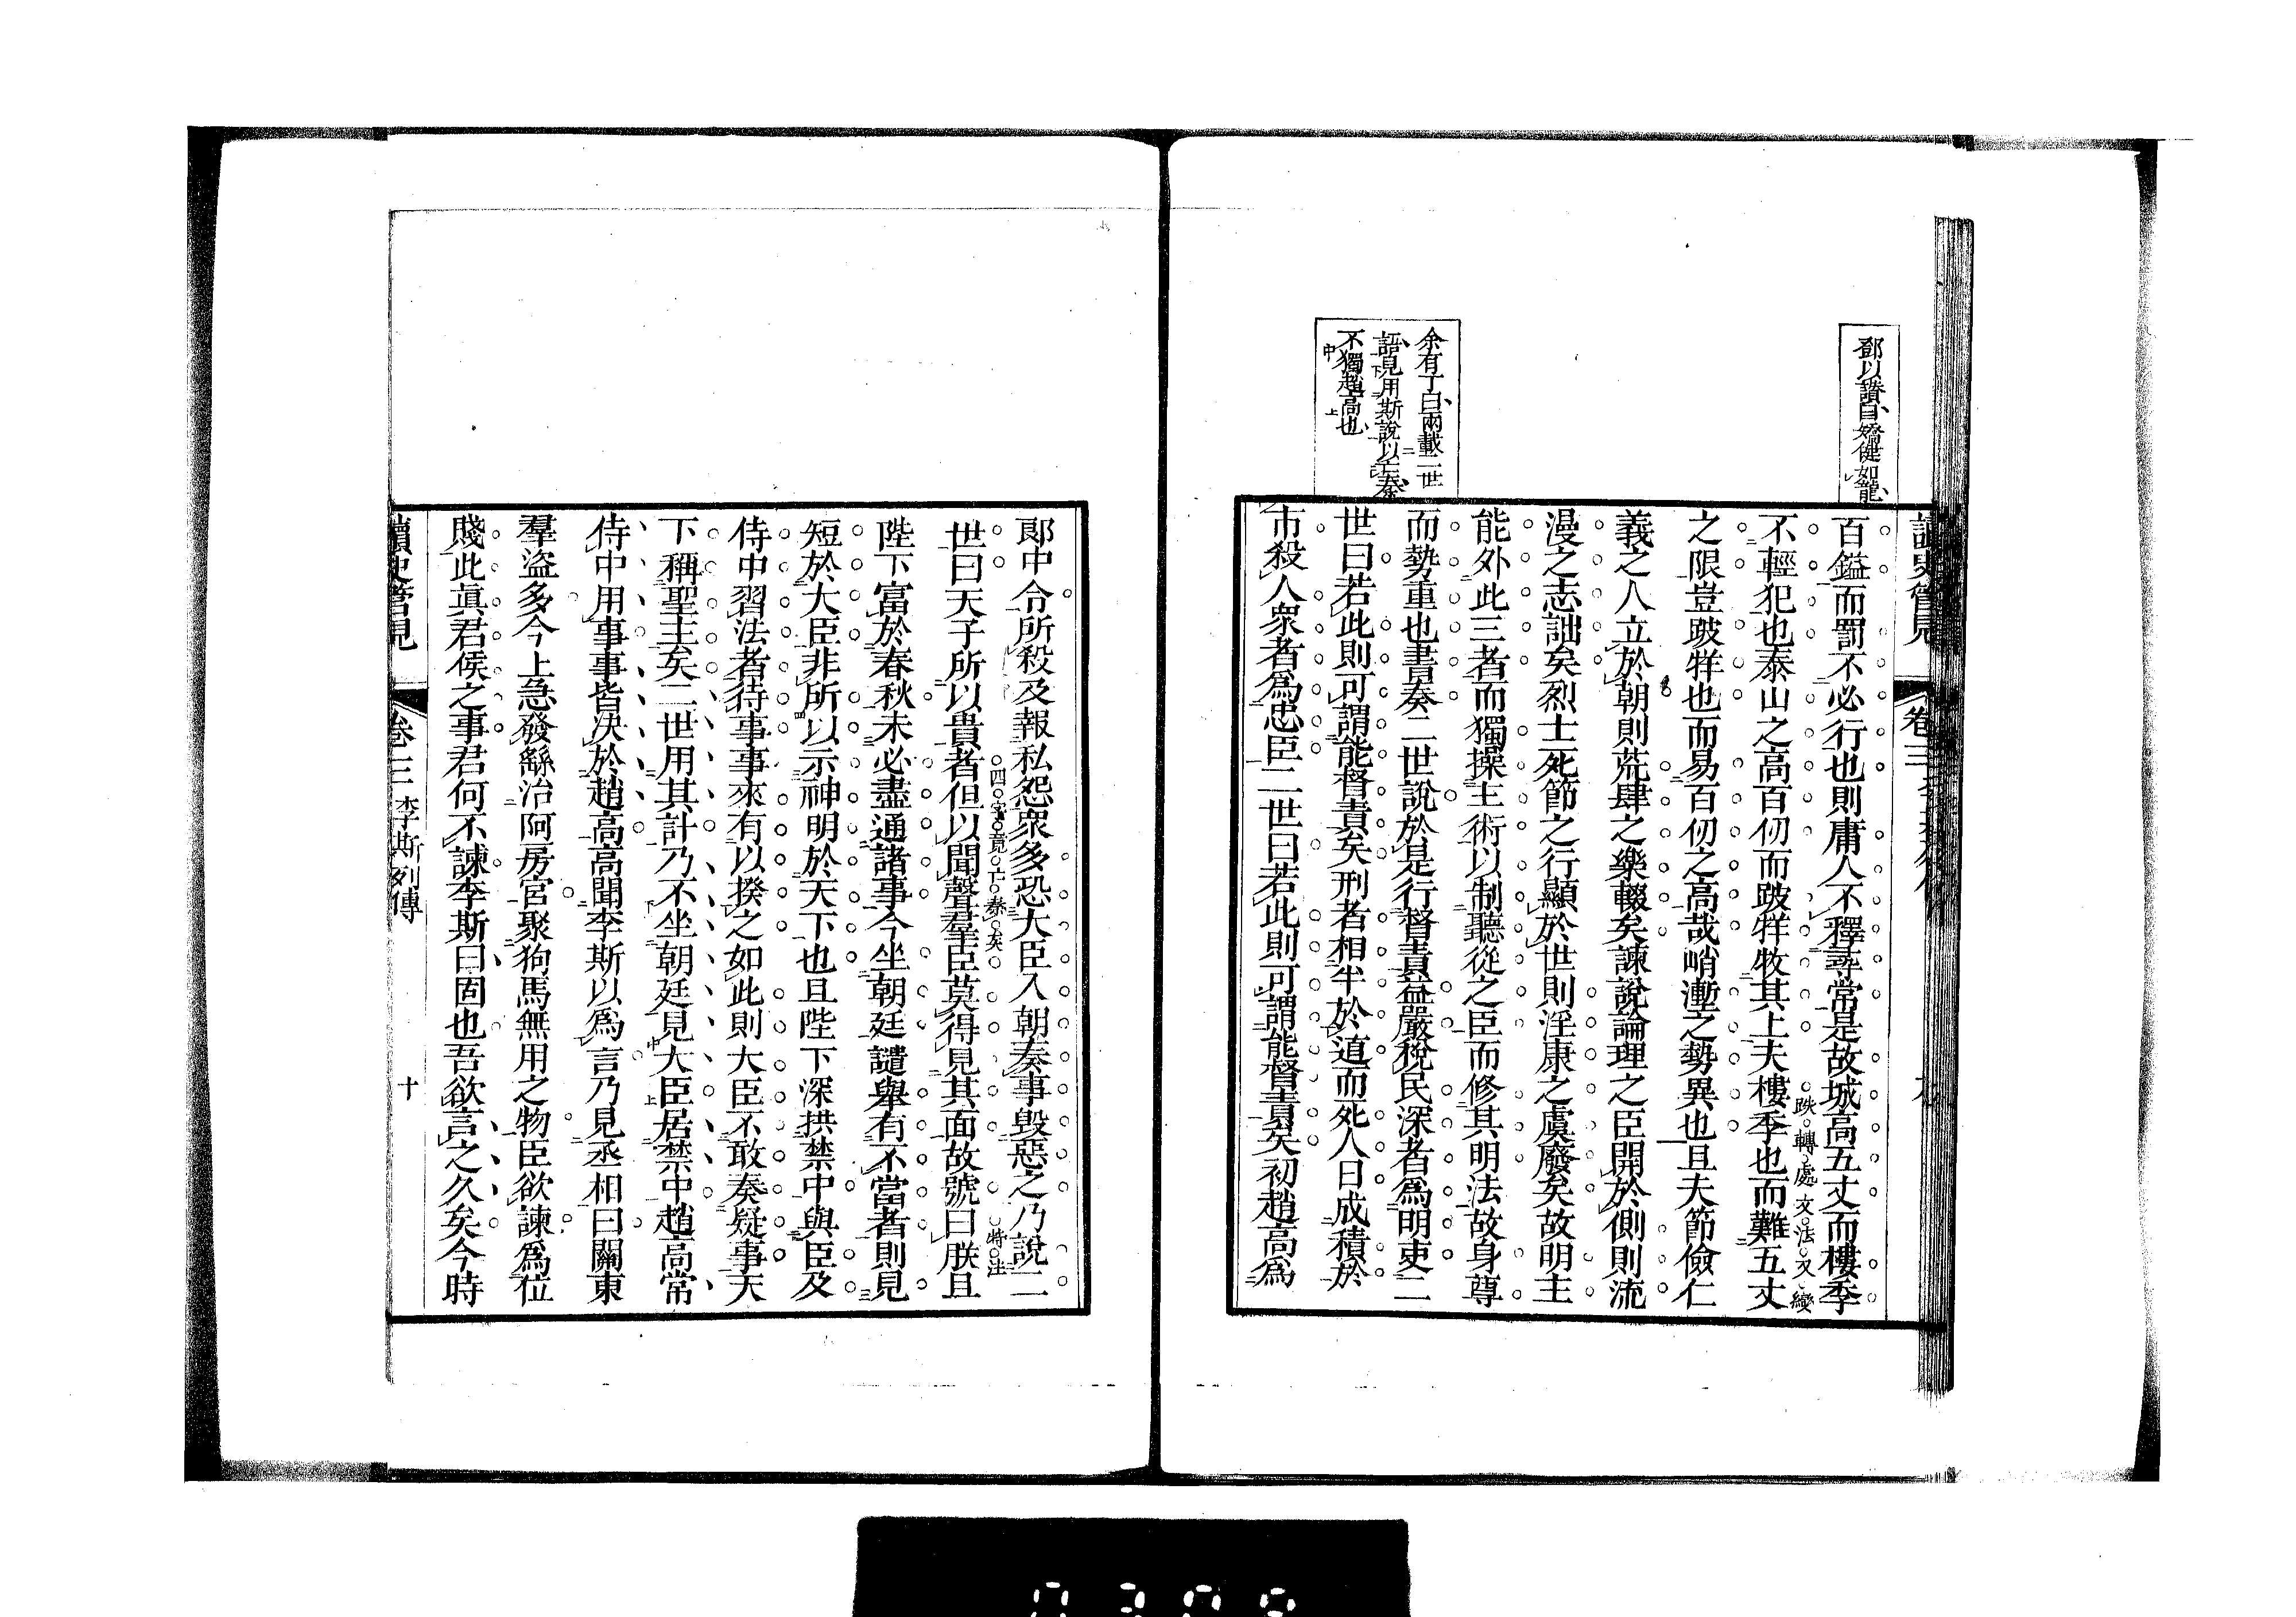 讀史管見
卷三
鄧以讃曰矯健如龍
百鎰而罰不必行也則庸人不釋尋常是故城高五丈而樓季
跌轉處文法又變
不輕犯也泰山之高百仞而跛牂牧其上夫樓季也而難五丈
之限豈跛牂也而易百仞之高哉峭塹之勢異也且夫節儉仁
義之人立於朝則荒肆之樂輟矣諫說論理之臣開於側則流
漫之志詘矣烈士死節之行顯於世則淫康之虞廢矣故明主
能外此三者而獨操主術以制聽從之臣而修其明法故身尊
而勢重也書奏二世說於是行督責益嚴稅民深者爲明吏二
余有丁曰兩載二世
語見用斯說以亡秦
不獨趙高也
世曰若此則可謂能督責矣刑者相半於道而死人日成積於
市殺人衆者爲忠臣二世曰若此則可謂能督責矣初趙高爲
郞中令所殺及報私怨衆多恐大臣入朝奏事毀惡之乃說二
四字竟亡秦矣
特法
世曰天子所以貴者但以聞聲羣臣莫得見其面故號曰朕且
陛下富於春秋未必盡通諸事今坐朝廷譴舉有不當者則見
短於大臣非所以示神明於天下也且陛下深拱禁中與臣及
侍中習法者待事事來有以揆之如此則大臣不敢奏疑事天
下稱聖主矣二世用其計乃不坐朝廷見大臣居禁中趙高常
侍中用事事皆決於趙高高聞李斯以爲言乃見丞相曰關東
羣盜多今上急發繇治阿房宮聚狗馬無用之物臣欲諫爲位
賤此眞君侯之事君何不諫李斯曰固也吾欲言之久矣今時
讀史管見
卷三 李斯列傳
十